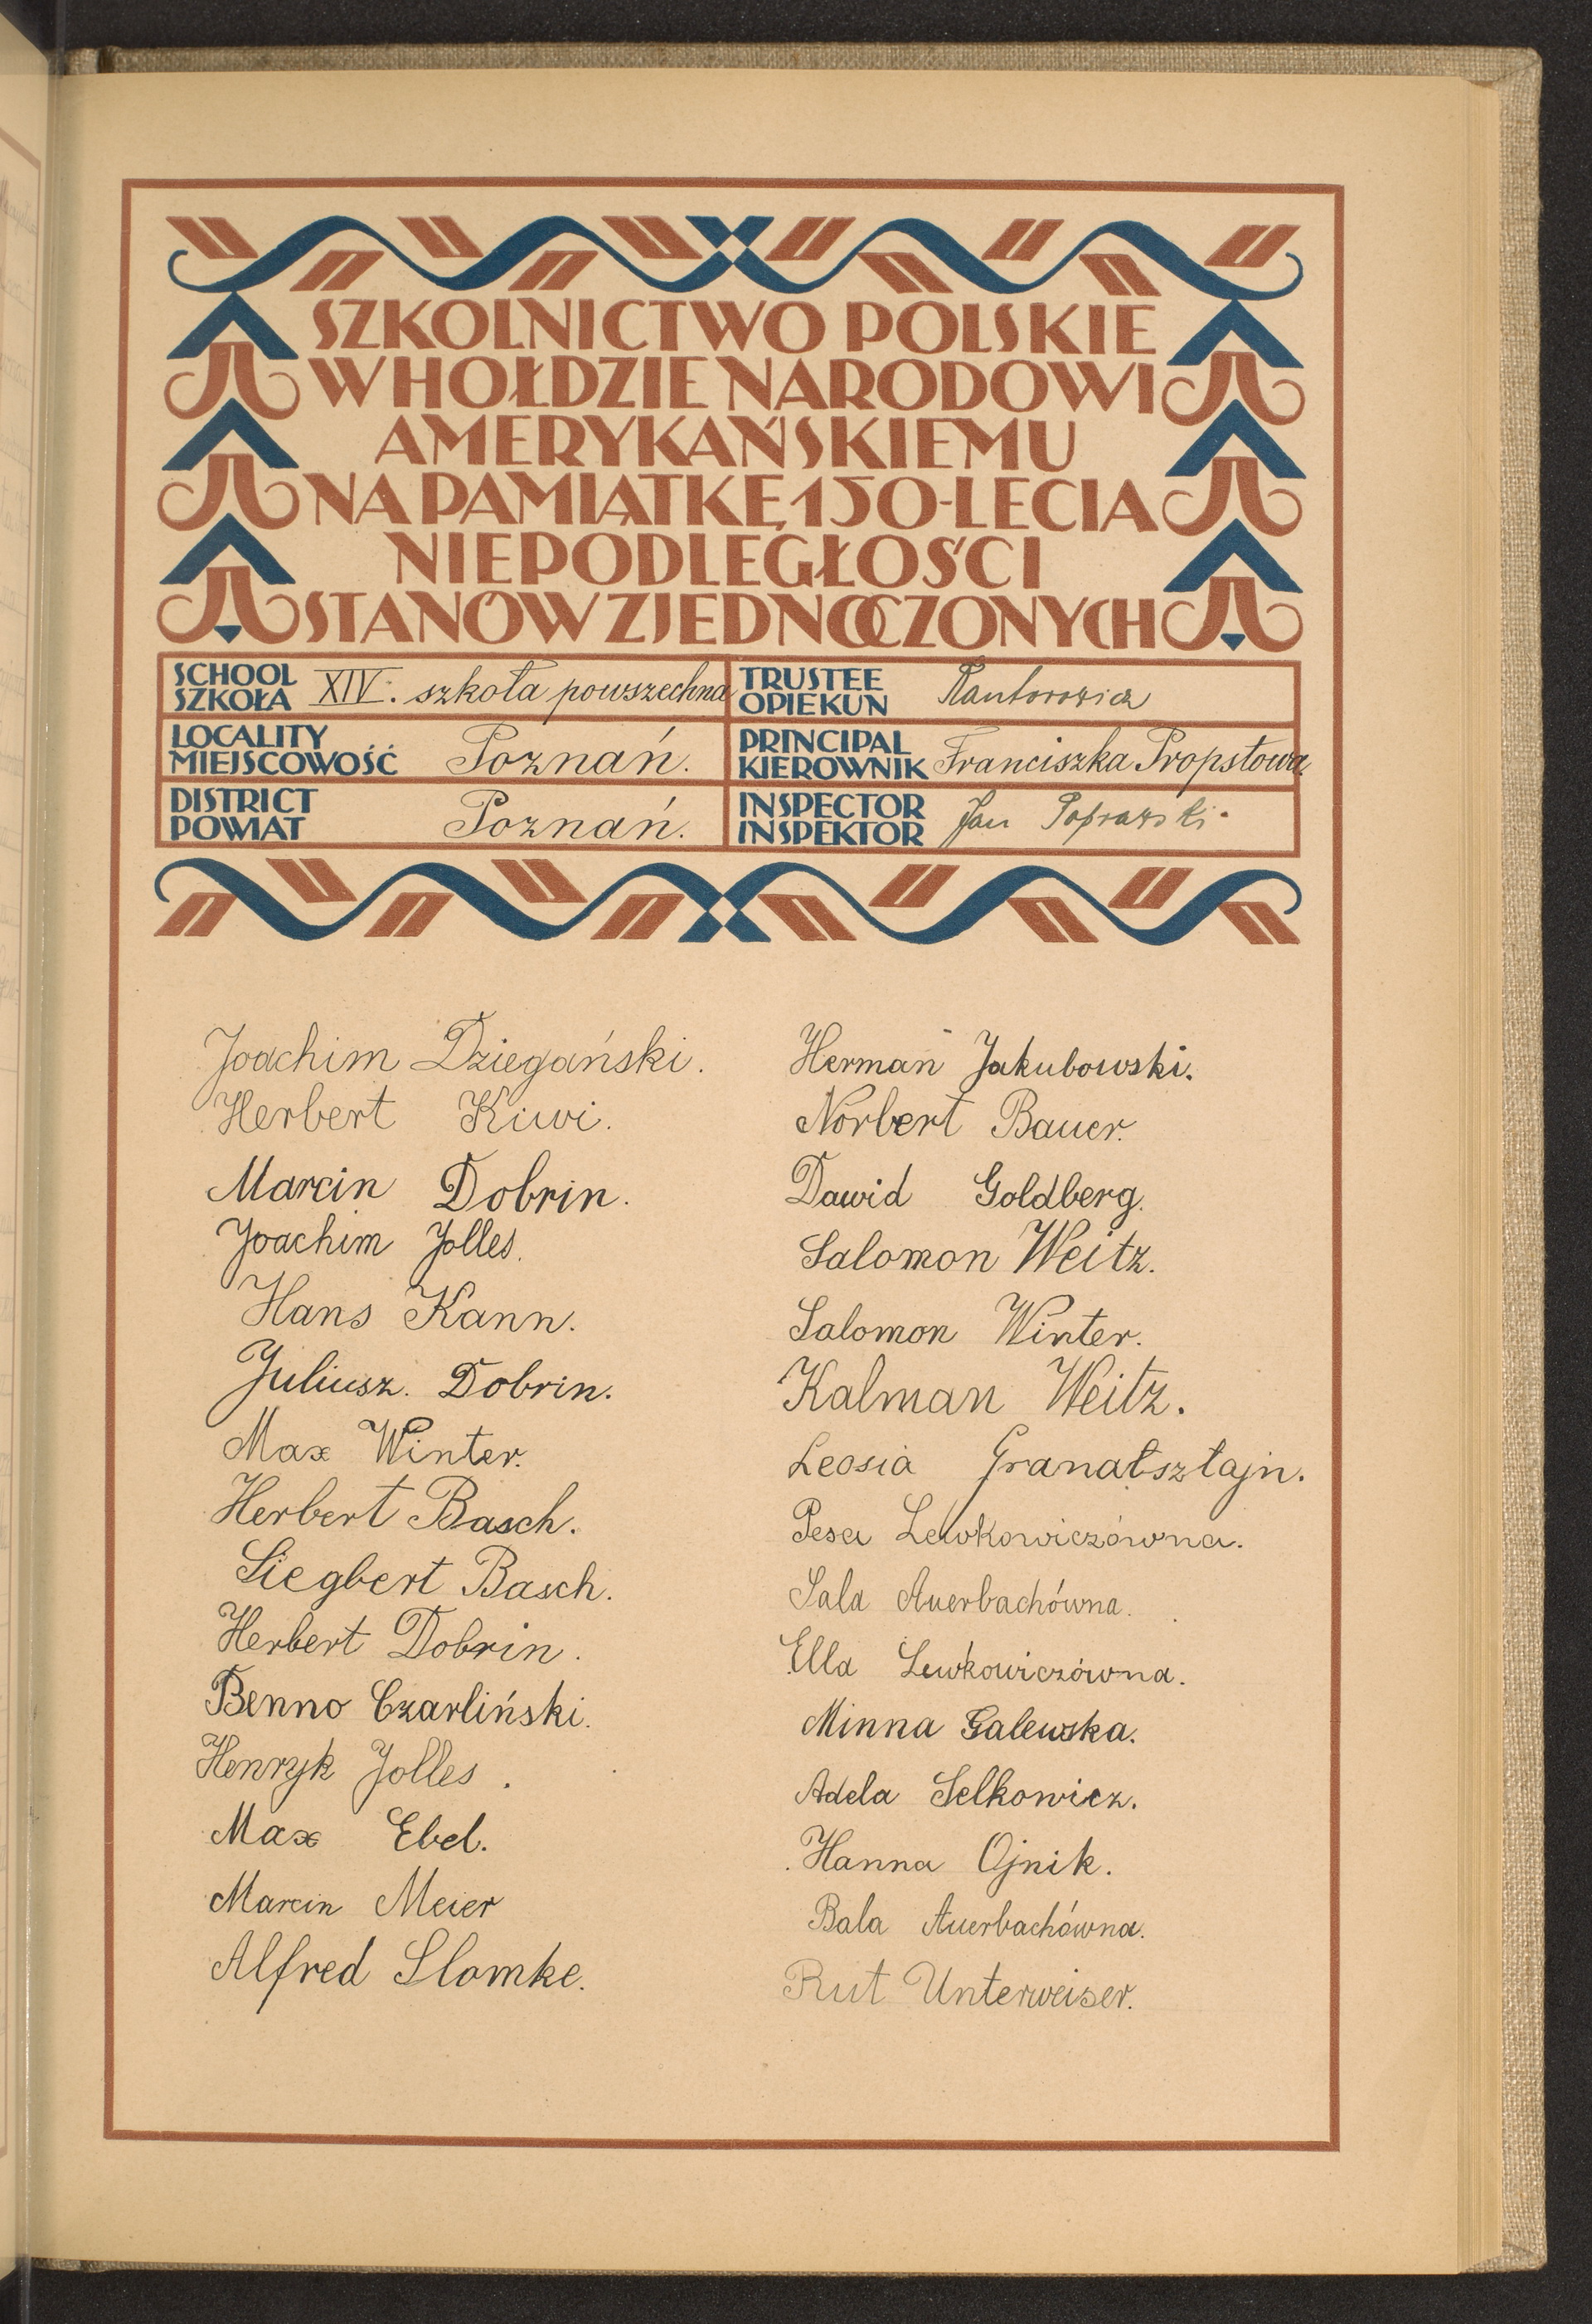 SZKOLNICTWO POLSKIE
W HOŁDZIE NARODOWI
AMERYKAŃSKIEMU
NA PAMIĄTKĘ 150-LECIA
NIEPODLEGŁOŚCI
STANÓW ZJEDNOCZONYCH
SCHOOL
SZKOŁA XIV. szkoła powszechna
TRUSTEE
OPIEKUN Kantorowicz
LOCALITY
MIEJSCOWOŚĆ Poznań.
PRINCIPAL
KIEROWNIK Franciszka Propstowa
DISTRICT
POWIAT Poznań.
INSPECTOR
INSPEKTOR Jan Poprawski
Joachim Dziegański.
Herbert Kiwi.
Marcin Dobrin.
Joachim Jolles.
Hans Kann.
Juliusz. Dobrin.
Max Winter.
Herbert Basch.
Siegbert Basch.
Herbert Dobrin.
Benno Czarliński.
Henryk Jolles.
Max Ebel.
Marcin Meier
Alfred Slomke.
Herman Jakubowski.
Norbert Bauer.
Dawid Goldberg.
Salomon Weitz.
Salomon Winter.
Kalman Weitz.
Leosia Granatsztajn.
Pesa Lewkowiczówna.
Sala Auerbachówna.
Ella Lewkowiczówna.
Minna Galewska.
Adela Selkowicz.
Hanna Ojnik.
Bala Auerbachówna.
Rut Unterweiser.